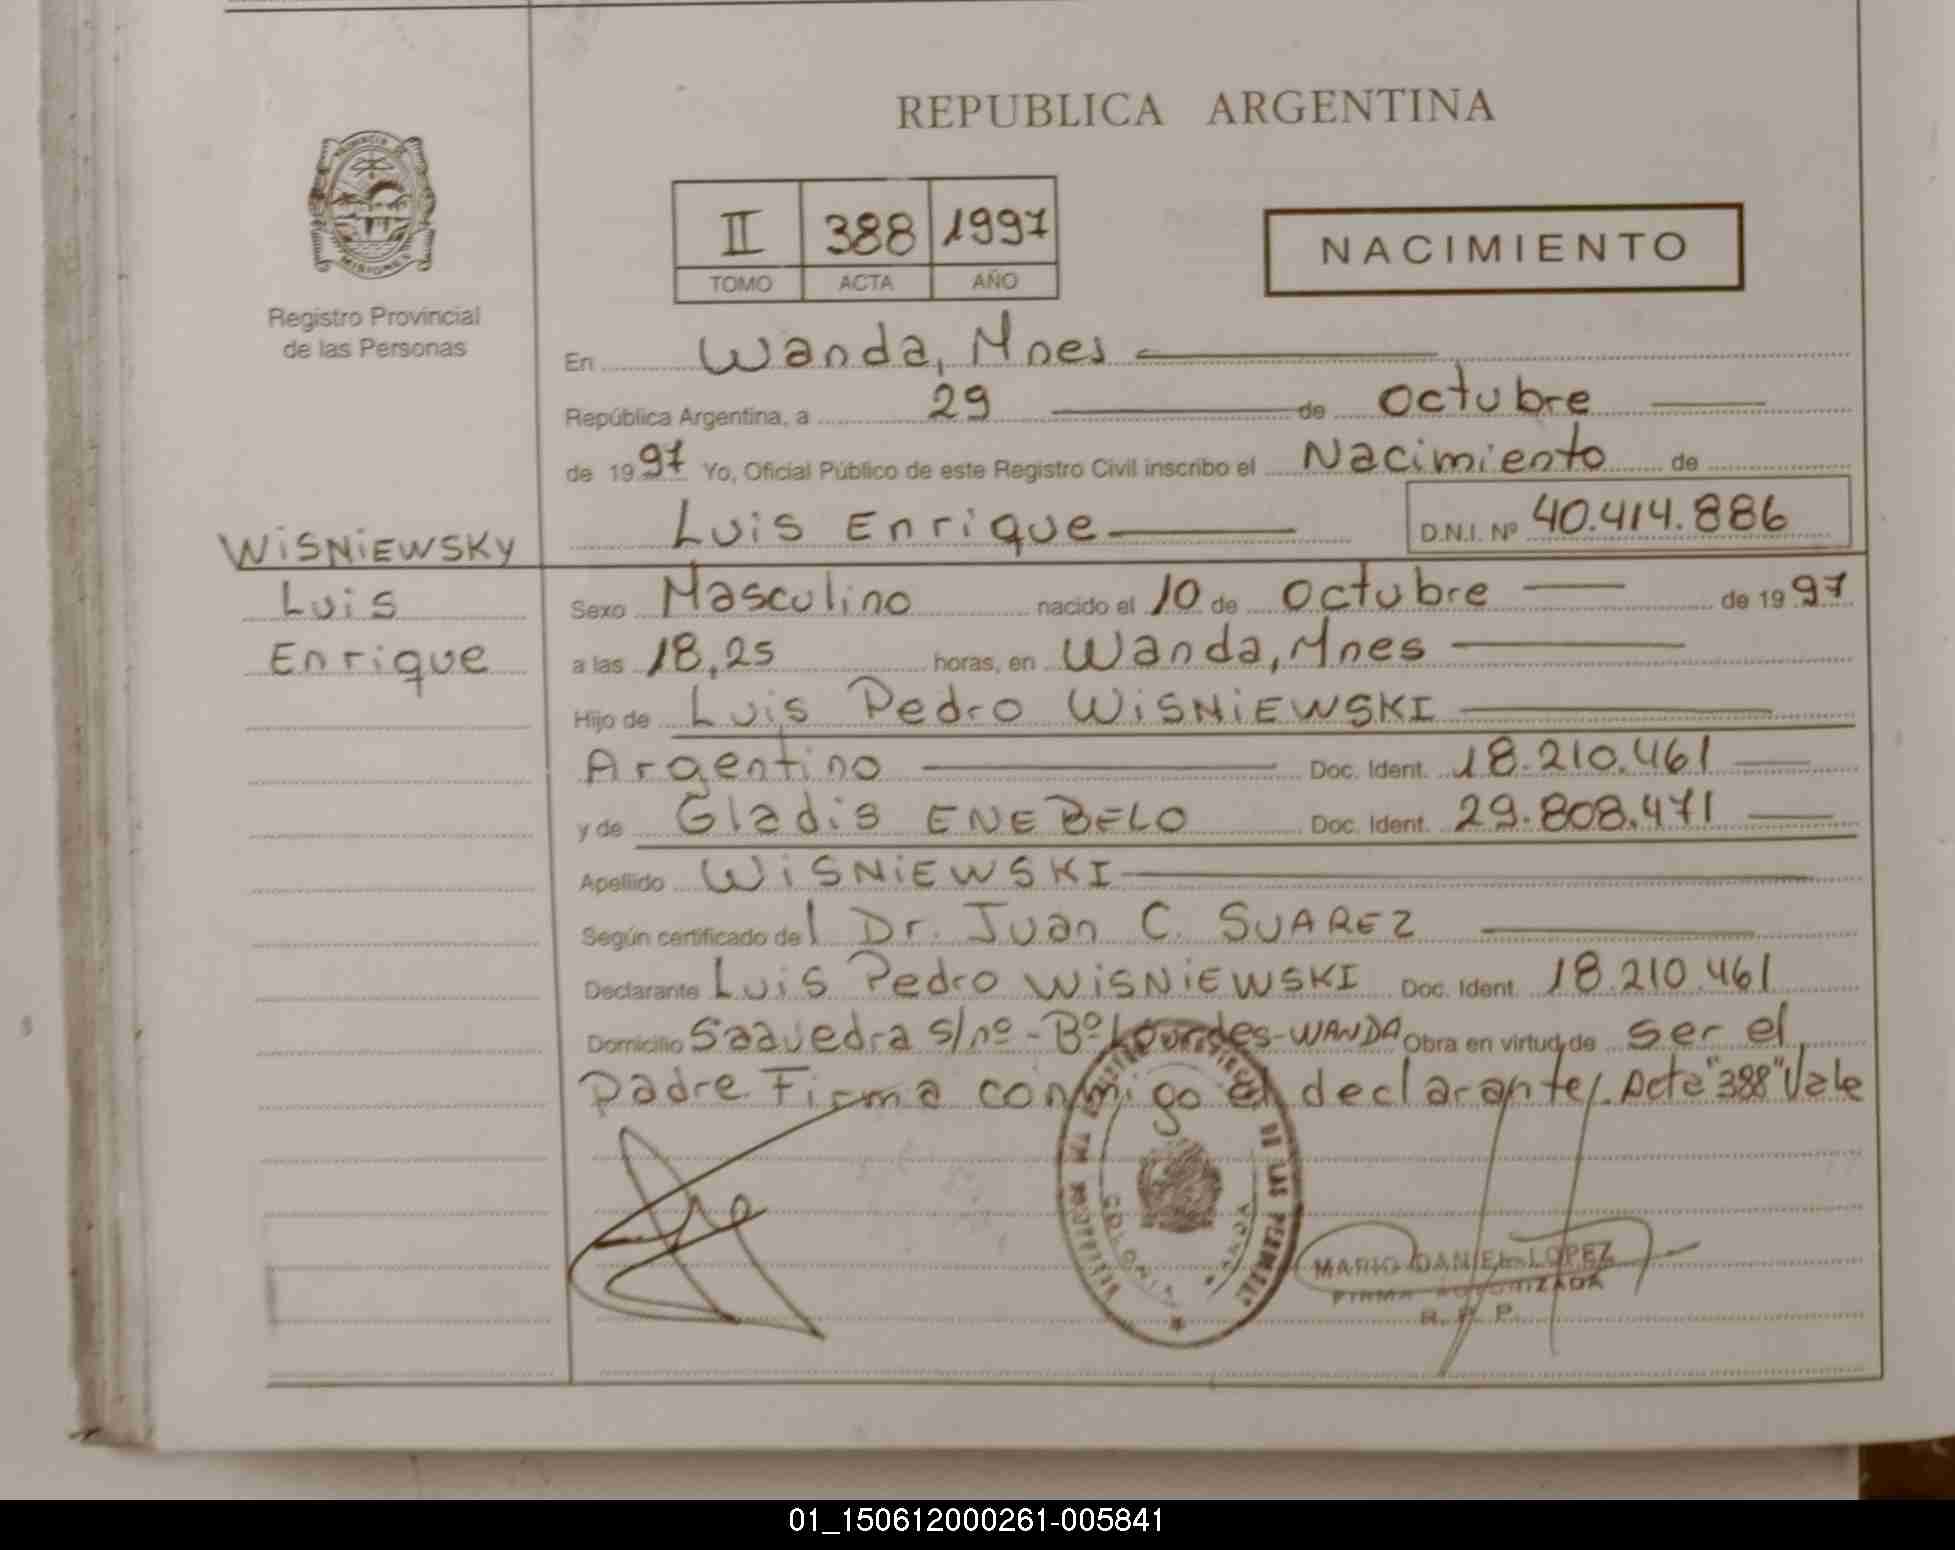 REPUBLICA ARGENTINA
II 388 1997
TOMO ACTA AÑO
NACIMIENTO
MISIONES
Registro Provincial
de las Personas
En Wanda, Mnes
República Argentina, a 29 de Octubre
de 1997 Yo, Oficial Público de este Registro Civil inscribo el Nacimiento de
Luis Enrique D.N.I. Nº 40.414.886
WiSNiEWSKY
Luis
Enrique
Sexo Masculino nacido el 10 de Octubre de 1997
a las 18,25 horas, en Wanda, Mnes
Hijo de Luis Pedro WiSNiEWSKI
Argentino Doc. Ident. 18.210.461
y de Gladis ENEBELO Doc. Ident. 29.808.471
Apellido WiSNiEWSKI
Según certificado del Dr. Juan C. SUAREZ
Declarante Luis Pedro WiSNiEWSKI Doc. Ident. 18.210.461
Domicilio Saavedra s/nº - Bº Lourdes - WANDA Obra en virtud de ser el
Padre Firma conmigo el declarante/. Acta "388" Vale
DE LAS PERSONAS
COLONIA WANDA
MARIO DANIEL LOPEZ
FIRMA AUTORIZADA
R. P. P.
01_150612000261-005841